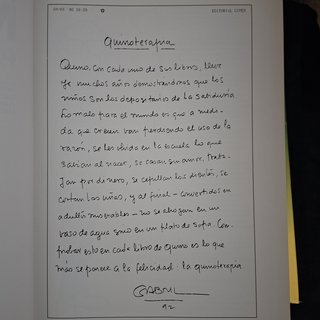 EDITORIAL LUMEN
Quinoterapia
Quino, con cada uno de sus libros, lleva
ya muchos años demostrándonos que los
niños son los depositarios de la sabiduría.
Lo malo para el mundo es que a medi-
da que crecen van perdiendo el uso de la
razón, se les olvida en la escuela lo que
sabían al nacer, se casan sin amor, traba-
jan por dinero, se cepillan los dientes, se
cortan las uñas, y al final - convertidos en
adultos miserables - no se ahogan en un
vaso de agua sino en un plato de sopa. Com-
probar esto en cada libro de Quino es lo que
más se parece a la felicidad: la quinoterapia
GABRIEL
92